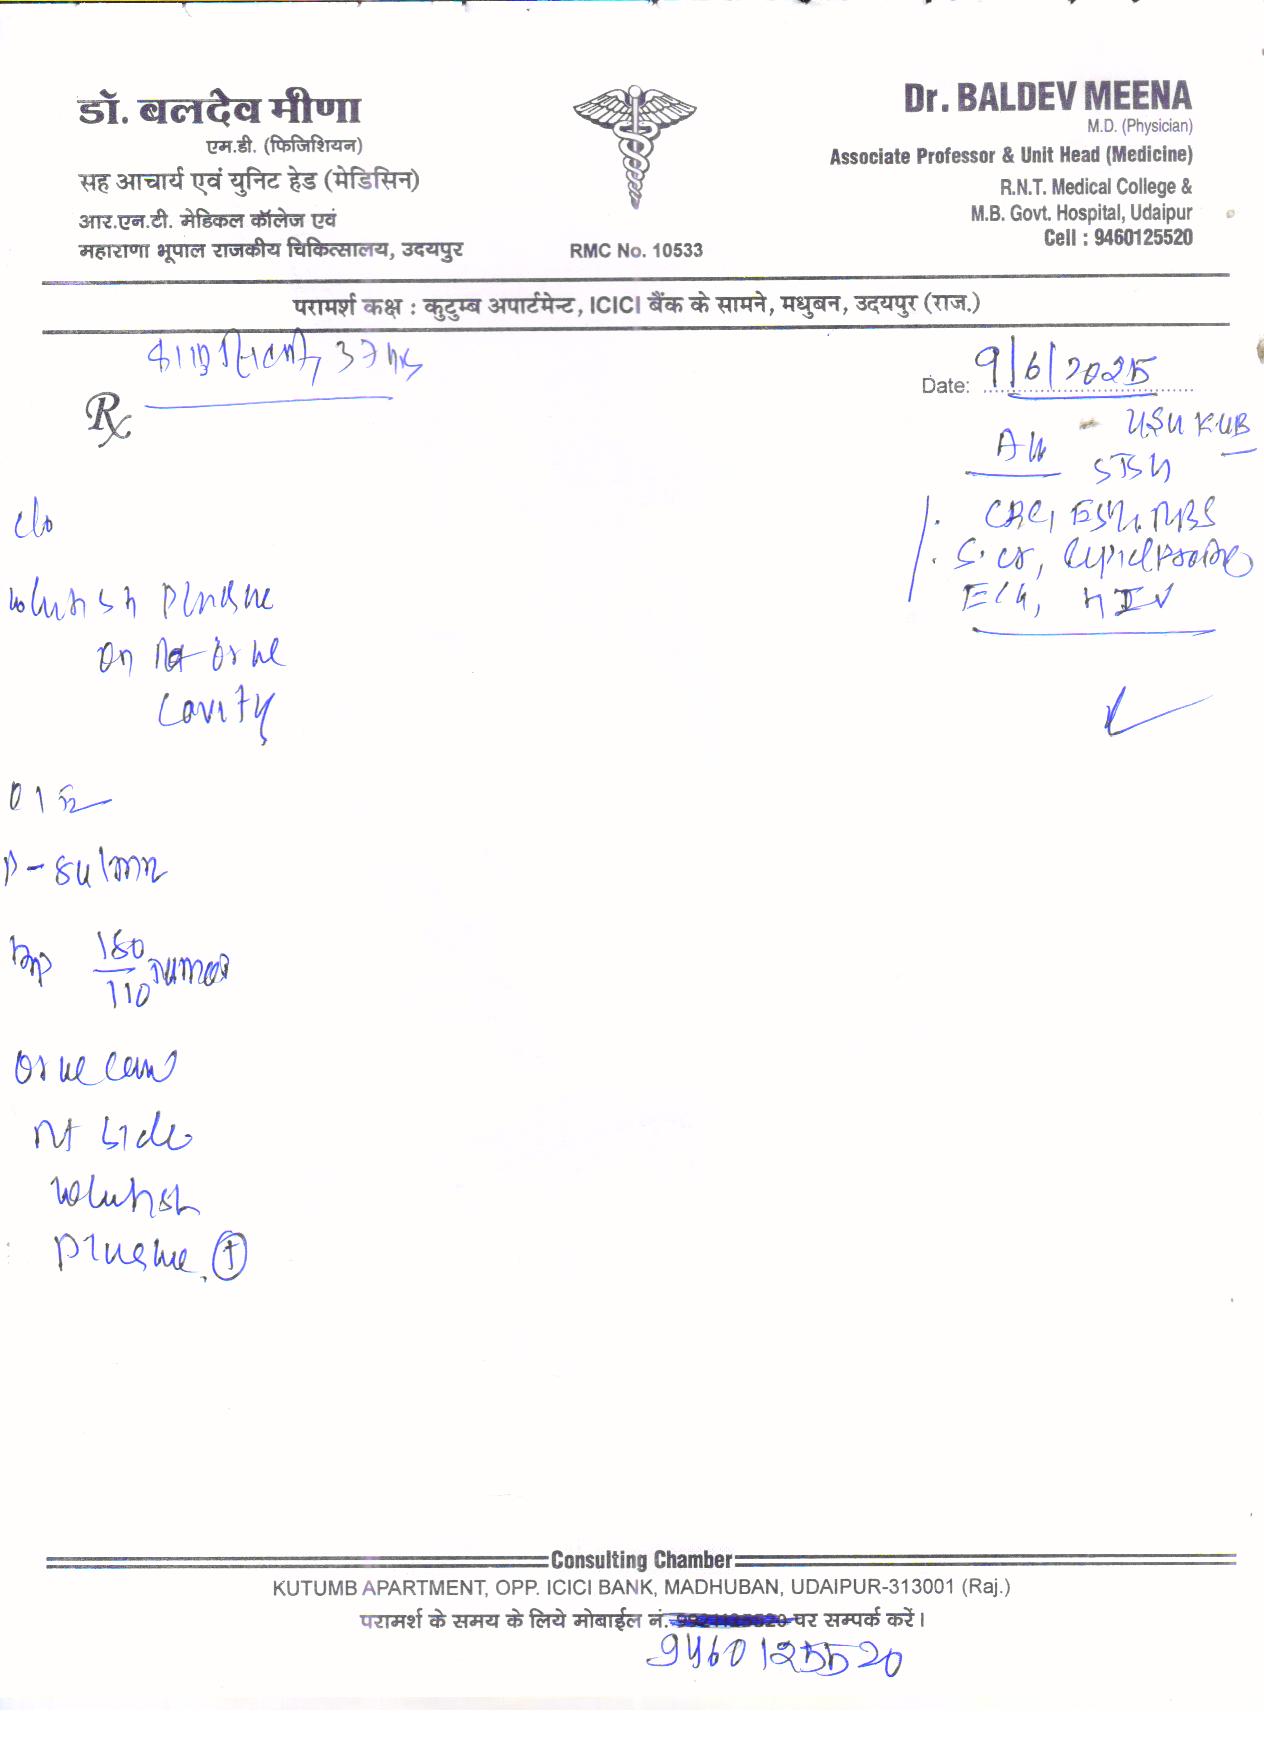 डॉ. बलदेव मीणा
एम.डी. (फिजिशियन)
सह आचार्य एवं युनिट हेड (मेडिसिन)
आर.एन.टी. मेडिकल कॉलेज एवं
महाराणा भूपाल राजकीय चिकित्सालय, उदयपुर
RMC No. 10533
Dr. BALDEV MEENA
M.D. (Physician)
Associate Professor & Unit Head (Medicine)
R.N.T. Medical College &
M.B. Govt. Hospital, Udaipur
Cell : 9460125520
परामर्श कक्ष : कुटुम्ब अपार्टमेन्ट, ICICI बैंक के सामने, मधुबन, उदयपुर (राज.)
Date: 9/6/2025
Rx
USG KUB
CBC, ESR, RBS
S. cr, Lipid profile
ECG, HIV
c/o
whitish plaque
on Rt oral
cavity
O/E
P-84/min
BP 160/110 mmHg
oral cavity
Rt side
whitish
plaque (+)
Consulting Chamber
KUTUMB APARTMENT, OPP. ICICI BANK, MADHUBAN, UDAIPUR-313001 (Raj.)
परामर्श के समय के लिये मोबाईल नं. पर सम्पर्क करें।
9460125520